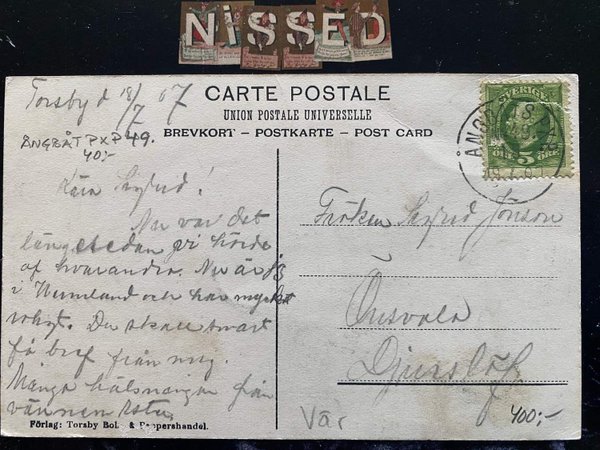 NISSED
Torsby d 18/7 07
CARTE POSTALE
UNION POSTALE UNIVERSELLE
BREVKORT – POSTKARTE – POST CARD
SVERIGE
5 ÖRE
ÅNGBÅT PXP 49.
40:-
Kära Sigrid!
Nu var det
länge sedan vi hörde
af hvarandra. Nu är jag
i Wermland och har mycket
roligt. Du skall snart
få bref från mig.
Många hälsningar från
vännen
Fröken Sigrid Jönson
Önsvala
Djurslöf
Vär
400:-
Förlag: Torsby Bok- & Pappershandel.